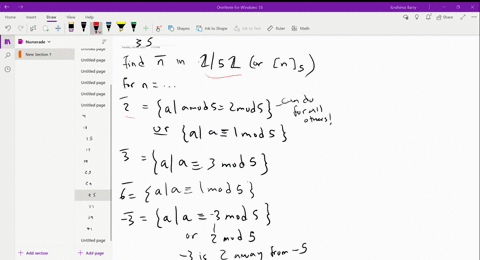 OneNote for Windows 10
Home
Insert
Draw
View
Help
Shapes
Ink to Shape
Ink to Text
Ruler
Math
Numerade
New Section 1
Untitled page
Untitled page
Untitled page
Untitled page
Untitled page
Untitled page
Add section
Add page
35
find n̅ in ℤ/5ℤ (or [n]₅)
for n = ...
2̅ = {a | a mod 5 = 2 mod 5} - can do
for all
others!
or {a | a ≡ 1 mod 5}
3̅ = {a | a ≡ 3 mod 5}
6̅ = {a | a ≡ 1 mod 5}
-3̅ = {a | a ≡ -3 mod 5}
or 2 mod 5
-3 is 2 away from -5